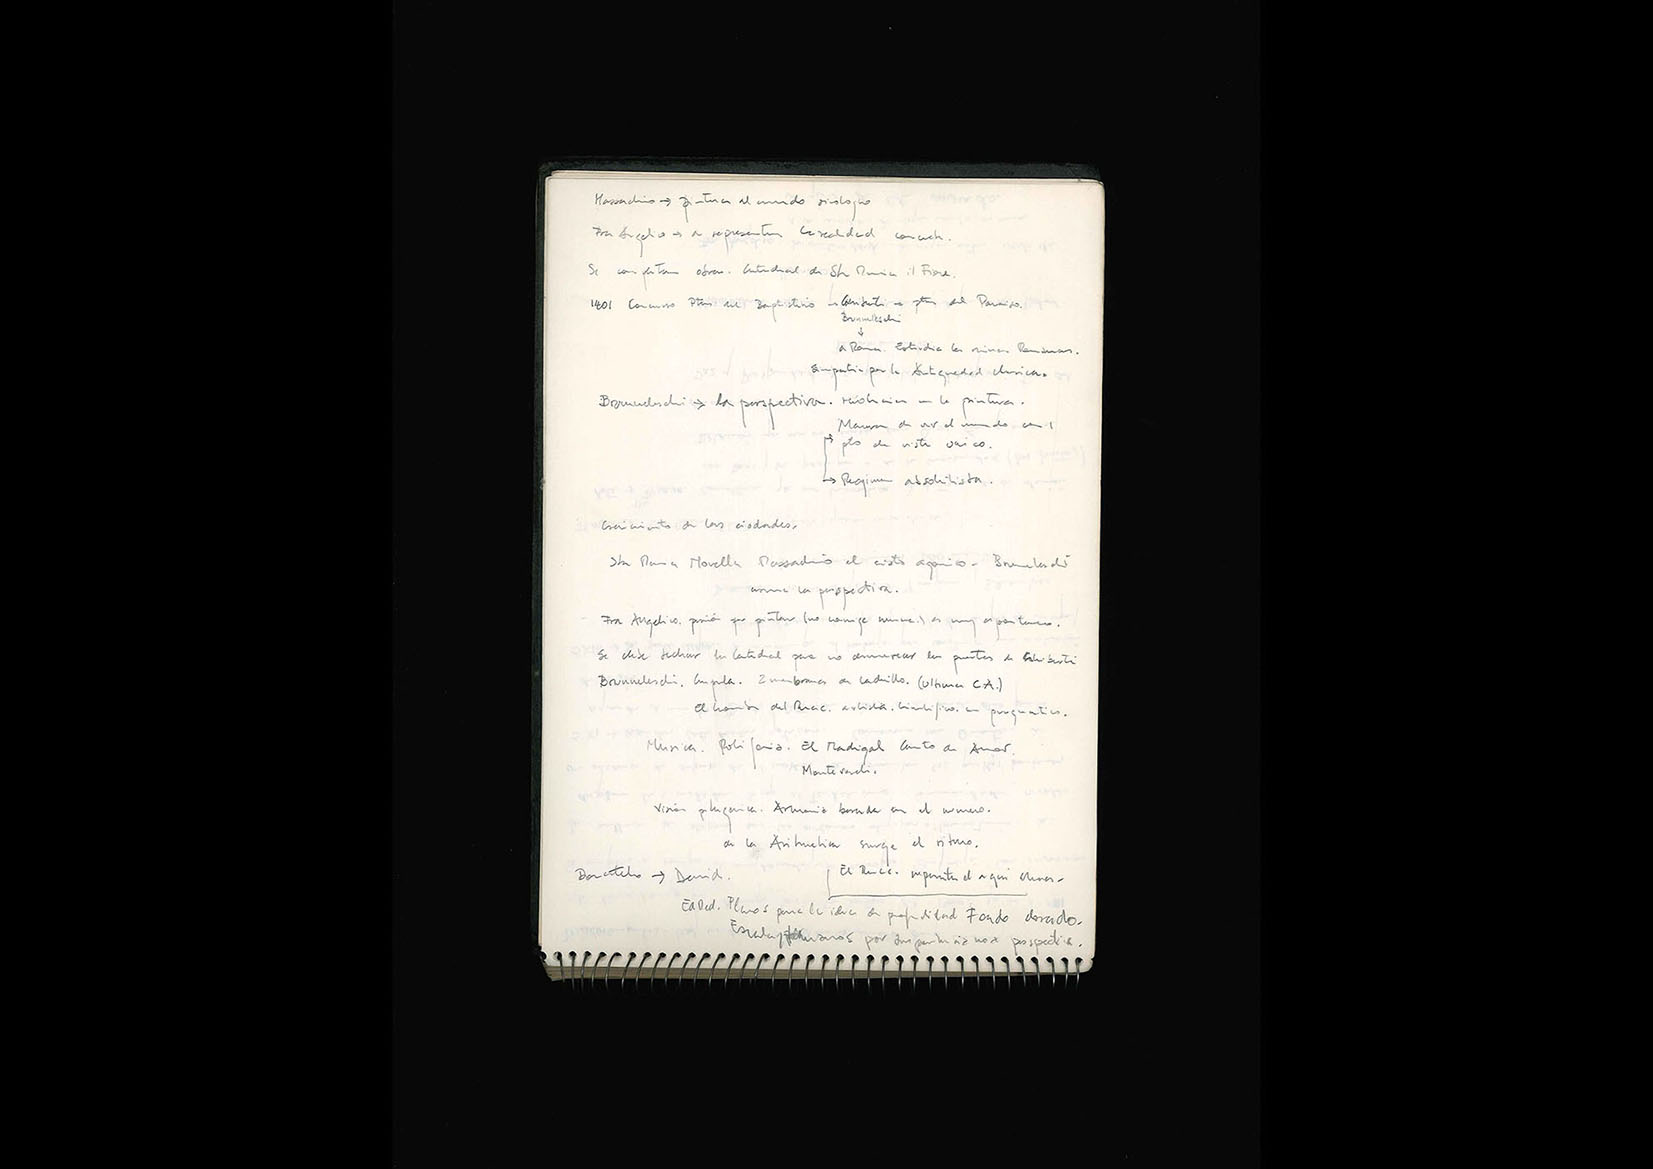 Massachio → pintura al mundo
Fra Angelico → a representar la realidad
Se completan obras. Catedral de Sta Maria il Fiore.
1401 Concurso Ptas del Baptisterio → Ghiberti → ptas del Paraiso.
Brunelleschi
↓
a Roma. Estudia las ruinas Romanas.
Simpatia por la Antiguedad clasica.
Brunneleschi → la perspectiva. revolucion en la pintura.
Manera de ver el mundo con 1
pto de vista unico.
→ Regimen absolutista.
Crecimiento de las ciudades.
Sta Maria Novella Massachio el cristo agonico - Bruneleschi
asume la perspectiva.
Fra Angelico. pasión que pintar (no corrige nunca) es muy espontaneo.
Se debe fechar la Catedral para no desmerecer las puertas de Ghiberti
Brunneleschi. Cupula. 2 membranas de ladrillo. (Ultimas C.A.)
El hombre del Renac. artista. cientifico. un pragmatico.
Musica. Polifonia. El Madrigal Canto de Amor.
Monteverdi.
Visión pitagorica. Armonia basada en el numero.
de la Aritmetica surge el ritmo.
Donatello → David.
El Renac. representa el aqui ahora -
Ed Med. Planos para la idea de profundidad Fondo dorado.
Escala humanos por importancia no x perspectiva.